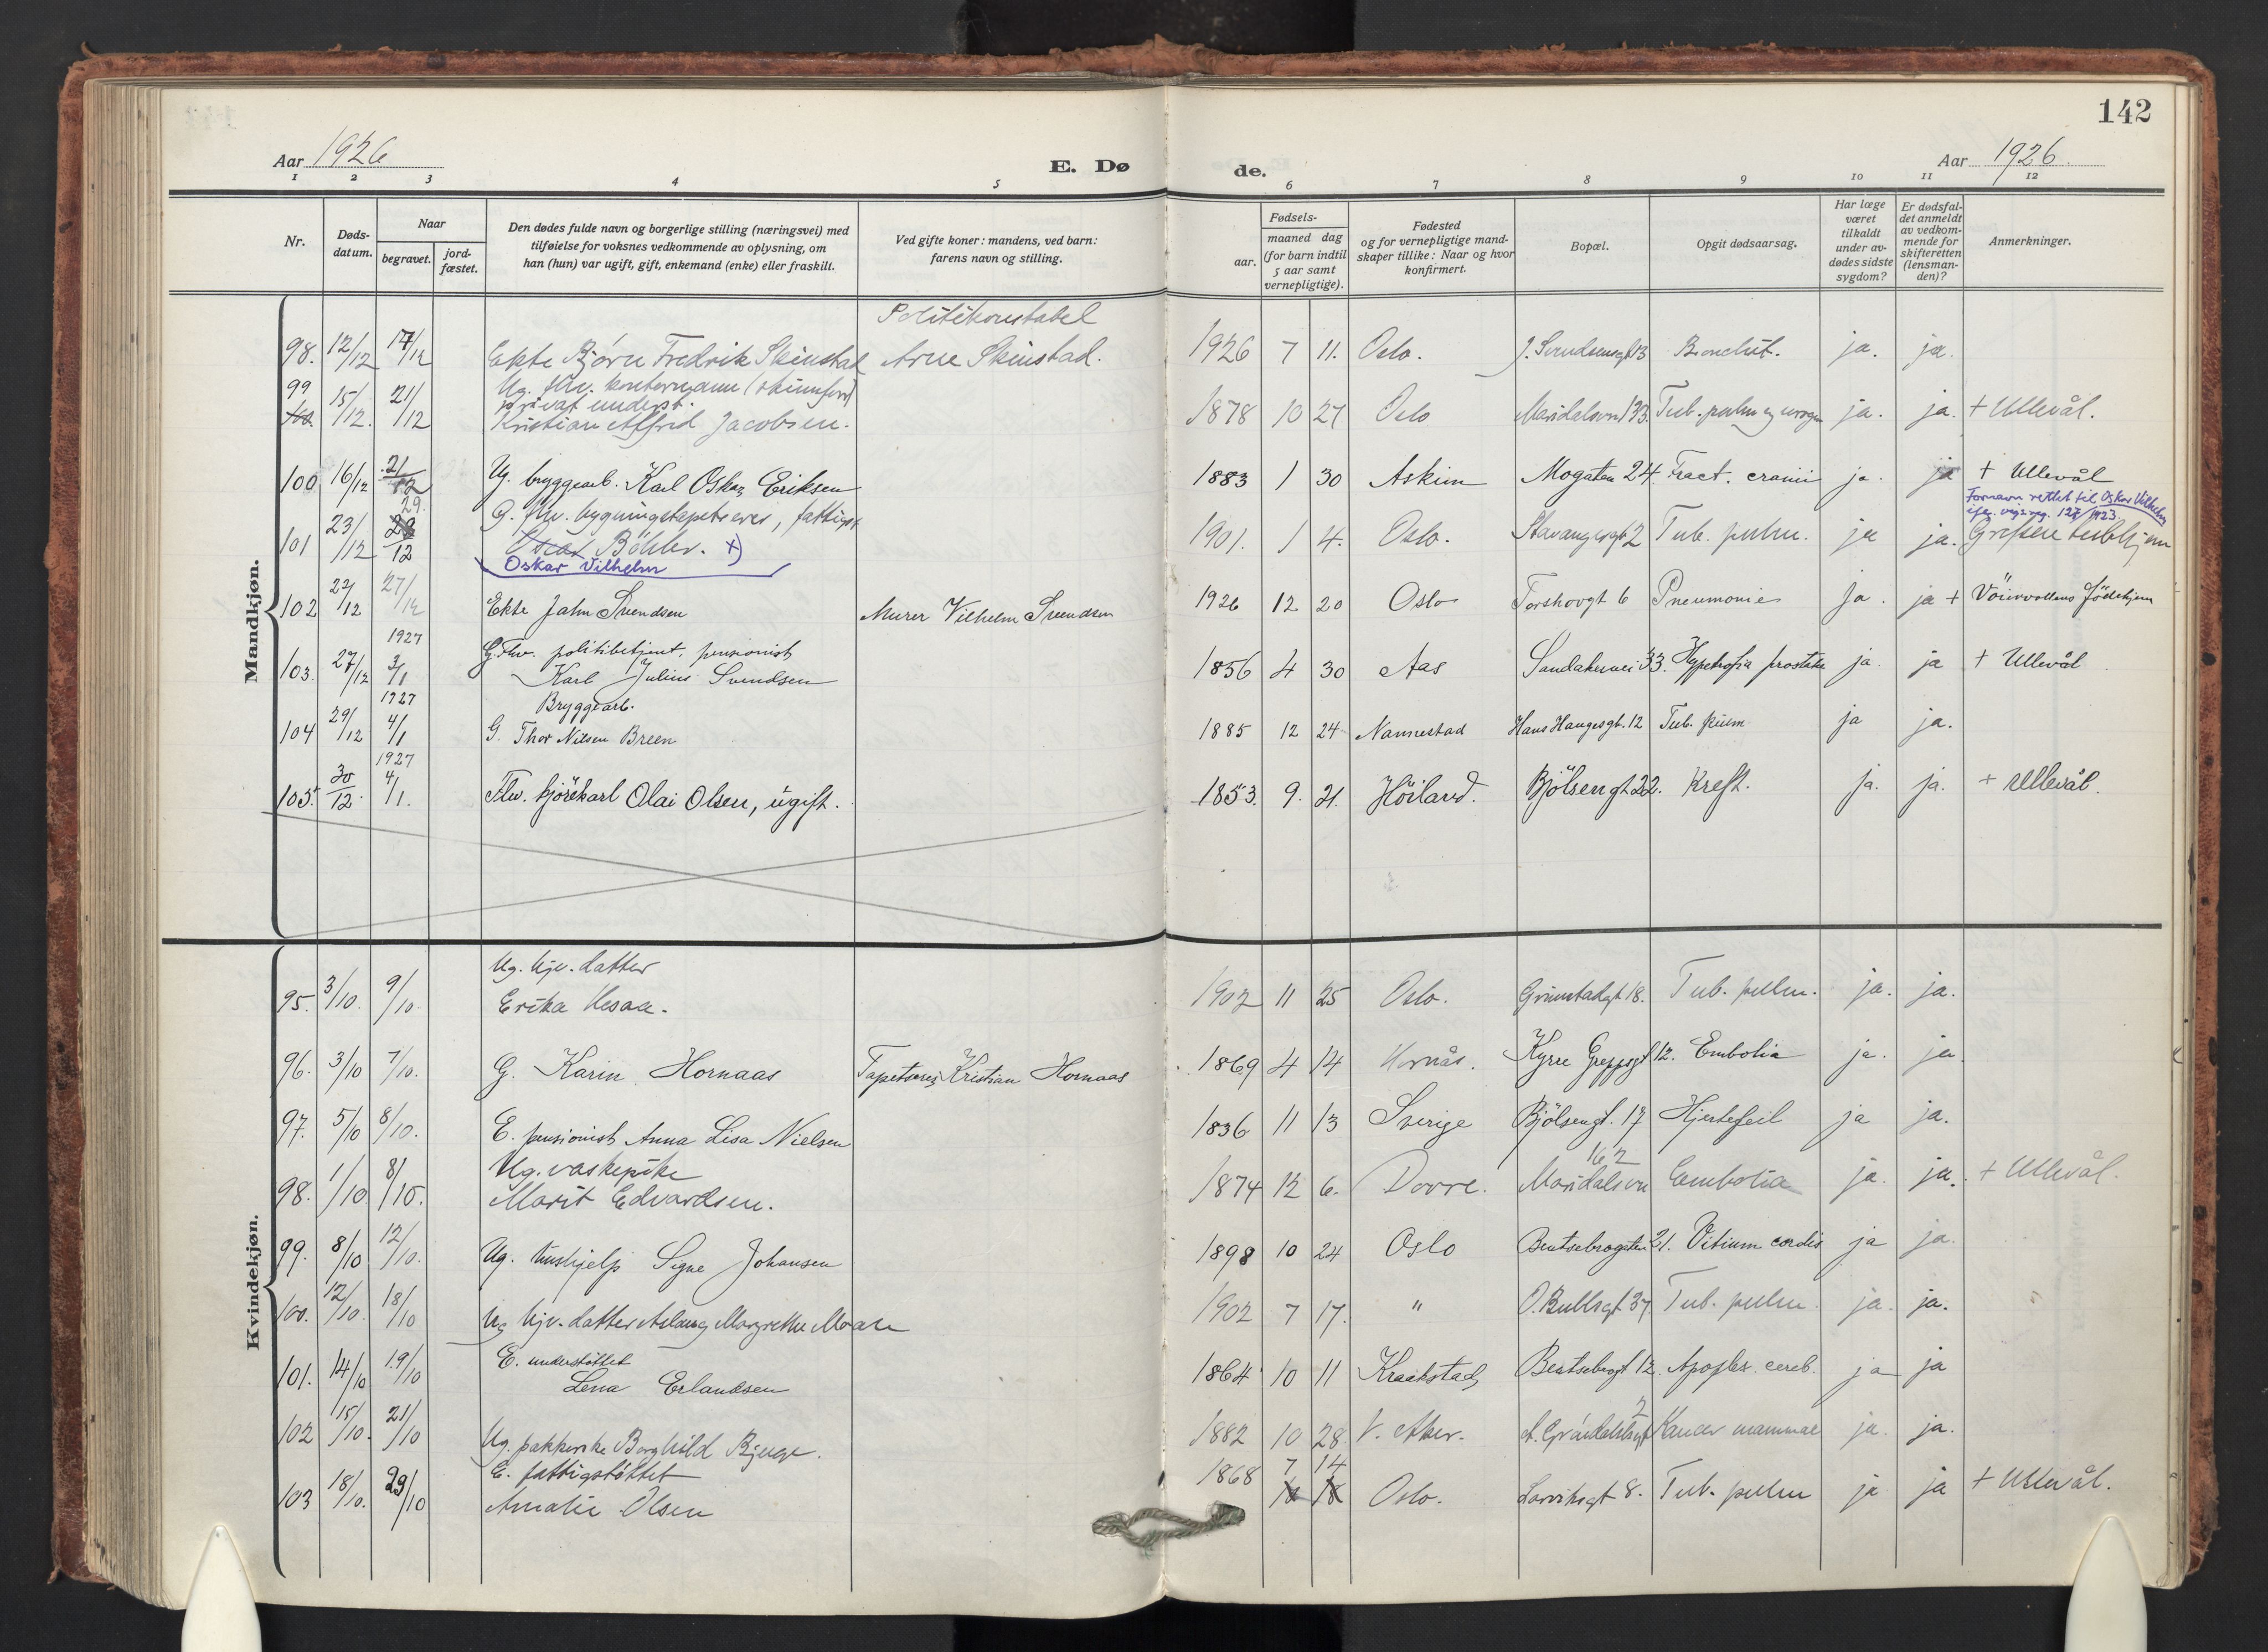 142
Aar 1926
E. Dø de.
Aar 1926.
1 2 3 4 5 6 7 8 9 10 11 12
Nr.
Døds-datum.
Naar
begravet.
jord-fæstet.
Den dødes fulde navn og borgerlige stilling (næringsvei) med
tilføielse for voksnes vedkommende av oplysning, om
han (hun) var ugift, gift, enkemand (enke) eller fraskilt.
Ved gifte koner: mandens, ved barn:
farens navn og stilling.
Fødsels-
aar.
maaned dag
(for barn indtil
5 aar samt
vernepligtige).
Fødested
og for vernepligtige mand-
skaper tillike: Naar og hvor
konfirmert.
Bopæl.
Opgit dødsaarsag.
Har læge
været
tilkaldt
under av-
dødes sidste
sygdom?
Er dødsfal-
det anmeldt
av vedkom-
mende for
skifteretten
(lensman-
den)?
Anmerkninger.
Mandkjøn.
Politikonstabel
98. 12/12 17/12 Ekte Bjørn Fredrik Skinstad Arne Skinstad. 1926 7 11. Oslo. J. Svendsensgt 13 Bronchit. ja. ja.
Ug. fhv. kontormann (skinnfor)
privat underst.
99 15/12. 21/12 Kristian Alfred Jacobsen. 1878 10 27 Oslo Maridalsvn 133. Tub. pulm og urogen ja. ja. + Ullevål.
100 16/12 21/12 Ug. bryggearb. Karl Oskar Eriksen 1883 1 30 Askim Mogaten 24 Fract. cranii ja. ja + Ullevål
Fornavn rettet til Oskar Vilhelm
G. fhv. bygningstapetserer, fattigst
101 23/12 29. 12 Oscar Böhler. x) 1901. 1 4. Oslo. Stavangergt 2 Tub. pulm. ja ja. Grefsen tubhjem
Oskar Vilhelm
102 22/12 27/12 Ekte Jahn Svendsen Murer Vilhelm Svendsen 1926 12 20 Oslo Torshovgt 6 Pneumonie ja. ja + Vöienvollens Födehjem
1927
G. Fhv. politibetjent, pensionist
103. 27/12 3/1 Karl Julius Svendsen 1856 4 30 Aas Sandakervei 33. Hypetrofia prostatæ ja. ja + Ullevål
1927
Bryggearb.
104 29/12 4/1 G. Thor Nilsen Breen 1885 12 24 Nannestad Hans Haugesgt. 12 Tub. pulm ja ja.
1927
105. 30/12. 4/1. Fhv. kjörekarl Olai Olsen, ugift. 1853. 9. 21. Höiland. Bjölsengt 22. Kreft. ja. ja. + Ullevål.
Kvindekjøn.
Ug. hjv. datter
95. 3/10. 9/10. Erika Hesaa. 1902 11 25 Oslo. Grimstadgt 18. Tub. pulm. ja. ja.
96. 3/10 7/10. G. Karin Hornaas Tapetserer Kristian Hornaas 1869 4 14 Hornås. Kyrre Greppsgt 12. Embolia ja. ja.
97. 5/10 8/10. E. pensionist Anna Lisa Nielsen 1836 11 13 Sverige Bjölsengt. 17 Hjertefeil ja ja.
Ug. vaskepike
162
98. 1/10 8/10. Marit Edvardsen. 1874 12 6. Dovre. Maridalsvn Embolia ja. ja. + Ullevål.
99. 8/10 12/10. Ug. hushjelp Signe Johansen 1898 10 24 Oslo Bentsebrogaten 21. Vitium cordis ja ja.
100. 12/10. 18/10 Ug hjv. datter Aslaug Margrethe Moan 1902 7 17. " O. Bullsgt 37 Tub. pulm. ja. ja.
E. understöttet
101. 14/10 19/10 Lena Erlandsen 1864 10 11 Kraakstad Bentsebrogt 12. Apoplex. cereb. ja ja
2
102 15/10. 21/10 Ug. pakkerske Borghild Bjerge. 1882 10 28. V. Aker. A. Gröndalsgt Kancer mammae ja. ja.
E. fattigstöttet
7 14
103 18/10. 29/10 Amalie Olsen 1868 Oslo. Larviksgt 8. Tub. pulm ja ja + Ullevål.